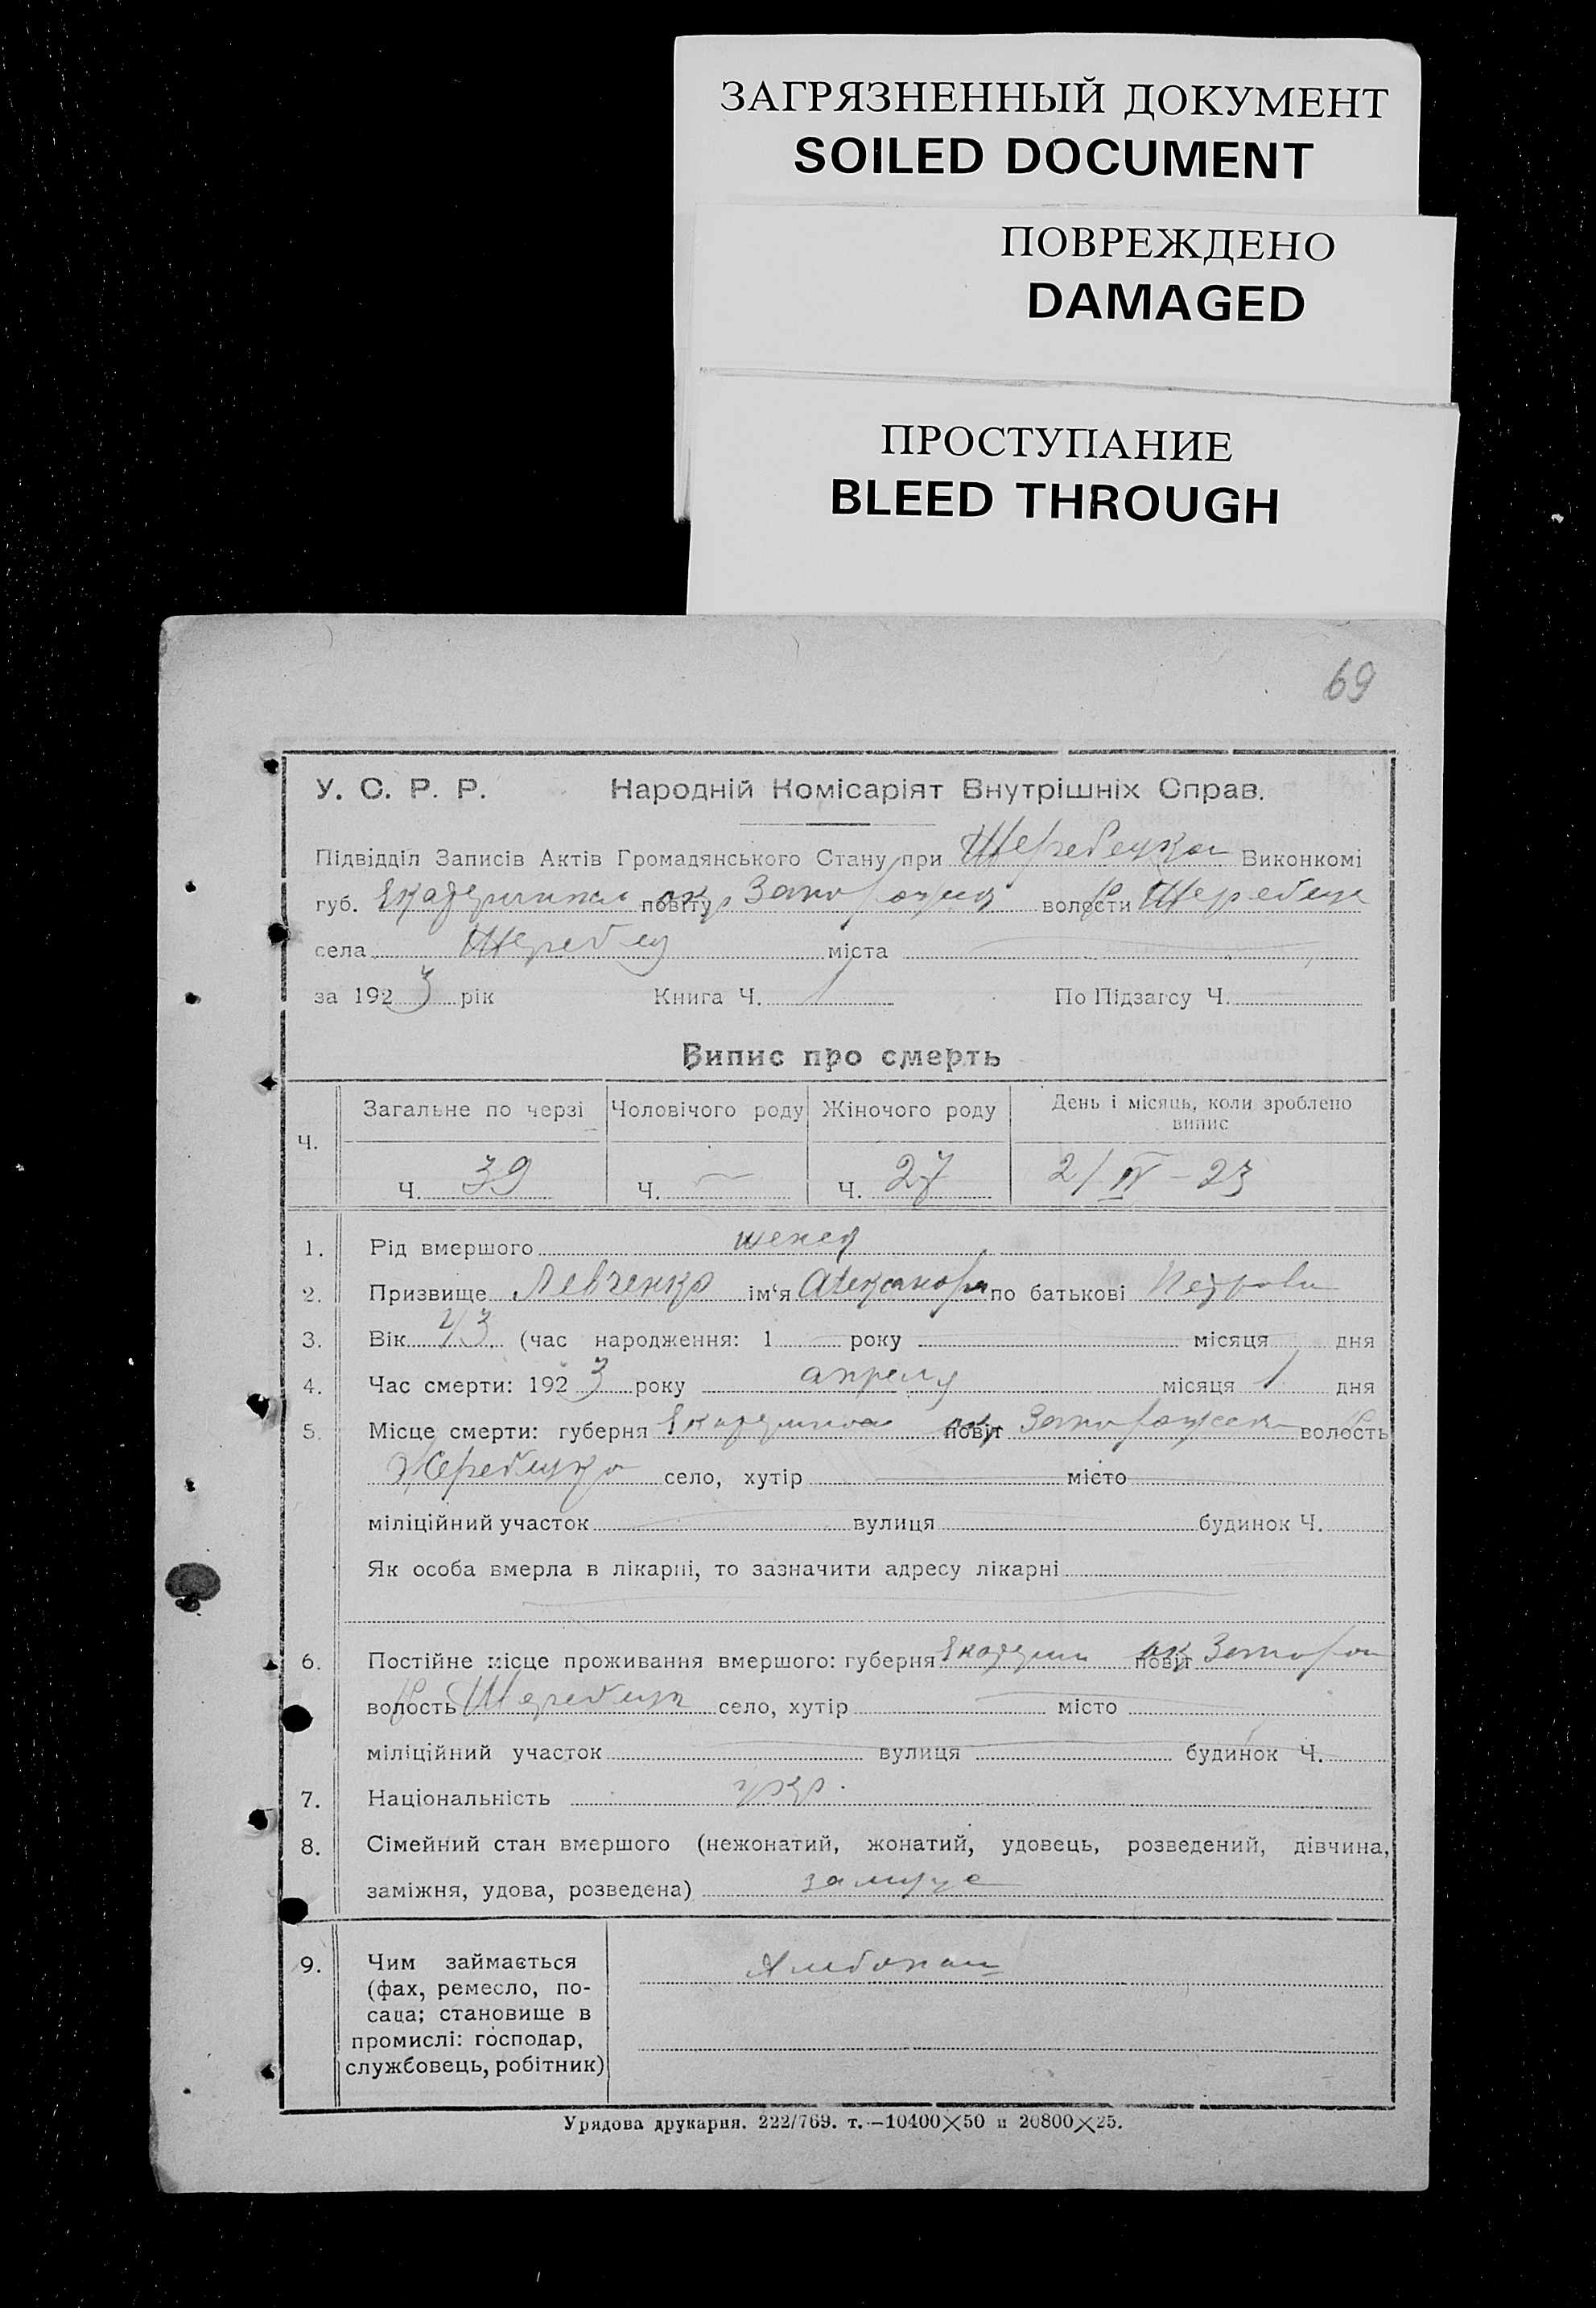 ЗАГРЯЗНЕННЫЙ ДОКУМЕНТ
SOILED DOCUMENT
ПОВРЕЖДЕНО
DAMAGED
ПРОСТУПАНИЕ
BLEED THROUGH
69
У. С. Р. Р. Народній Комісаріят Внутрішніх Справ.
Підвідділ Записів Актів Громадянського Стану при Виконкомі
губ. повіту волости
села міста
за 1923 рік Книга Ч. 1 По Підзагсу Ч.
Випис про смерть
Ч. Загальне по черзі Чоловічого роду Жіночого роду День і місяць, коли зроблено випис
Ч. 39 Ч. — Ч. 27 2/IV - 23
1. Рід вмершого женск
2. Призвище Левченко ім'я Александра по батькові Петрови
3. Вік 43 (час народження: 1 року місяця дня
4. Час смерти: 1923 року апреля місяця 1 дня
5. Місце смерти: губерня повіт волость
село, хутір місто
міліційний участок вулиця будинок Ч.
Як особа вмерла в лікарні, то зазначити адресу лікарні
6. Постійне місце проживання вмершого: губерня повіт
волость село, хутір місто
міліційний участок вулиця будинок Ч.
7. Національність укр.
8. Сімейний стан вмершого (нежонатий, жонатий, удовець, розведений, дівчина,
заміжня, удова, розведена)
9. Чим займається
(фах, ремесло, по-
сада; становище в
промислі: господар,
службовець, робітник)
Урядова друкарня. 222/769. т.—10400×50 и 20800×25.